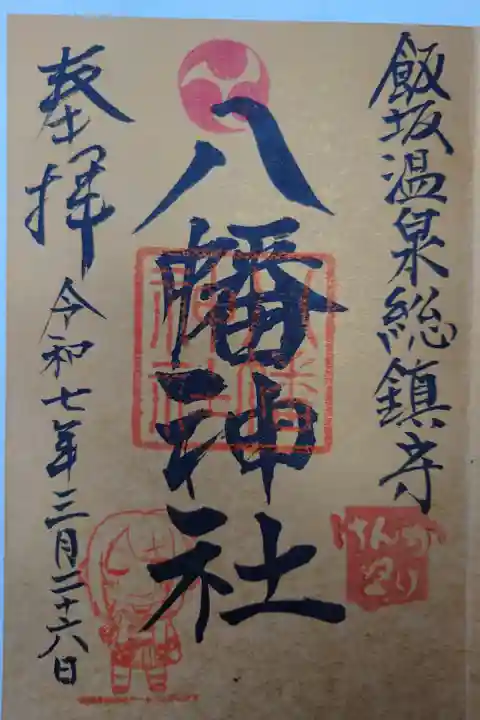 飯坂温泉総鎮守
八幡神社
奉拝
令和七年三月二十六日
八幡
神社
けんか